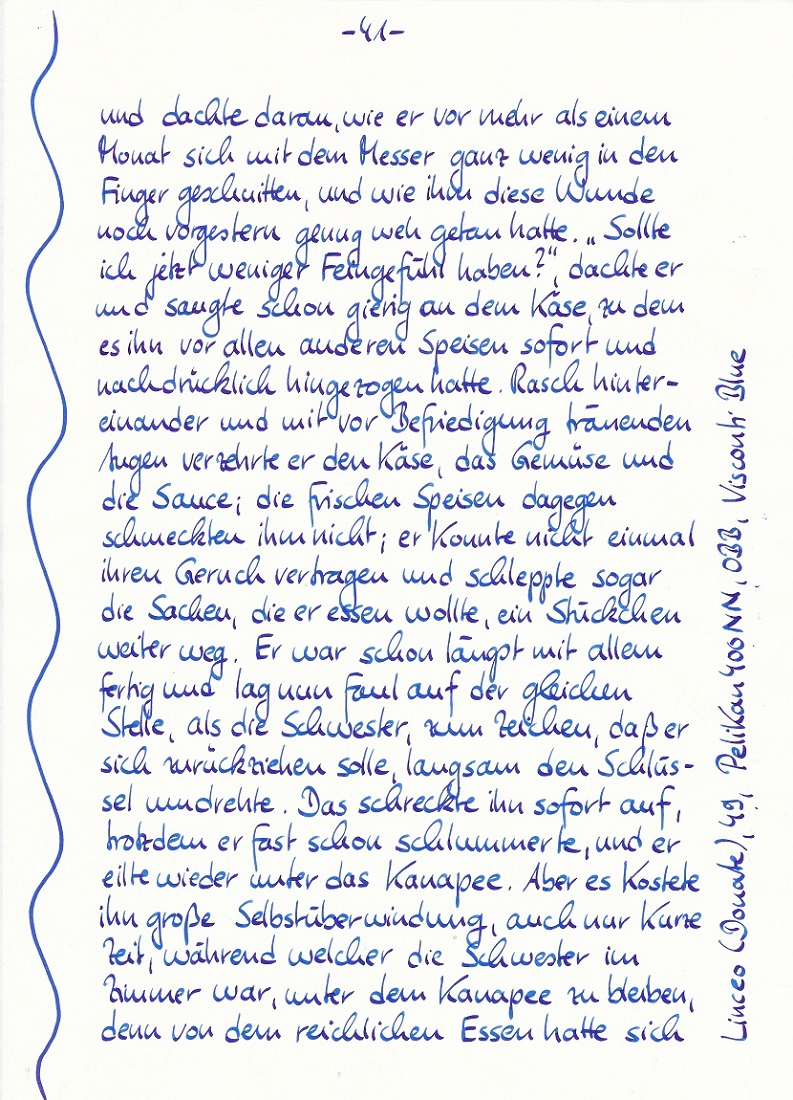 -41-
und dachte daran, wie er vor mehr als einem
Monat sich mit dem Messer ganz wenig in den
Finger geschnitten, und wie ihm diese Wunde
noch vorgestern genug weh getan hatte. „Sollte
ich jetzt weniger Feingefühl haben?“, dachte er
und saugte schon gierig an dem Käse, zu dem
es ihn vor allen anderen Speisen sofort und
nachdrücklich hingezogen hatte. Rasch hinter-
einander und mit vor Befriedigung tränenden
Augen verzehrte er den Käse, das Gemüse und
die Sauce; die frischen Speisen dagegen
schmeckten ihm nicht; er konnte nicht einmal
ihren Geruch vertragen und schleppte sogar
die Sachen, die er essen wollte, ein Stückchen
weiter weg. Er war schon längst mit allem
fertig und lag nun faul auf der gleichen
Stelle, als die Schwester, zum Zeichen, daß er
sich zurückziehen solle, langsam den Schlüs-
sel umdrehte. Das schreckte ihn sofort auf,
trotzdem er fast schon schlummerte, und er
eilte wieder unter das Kanapee. Aber es kostete
ihn große Selbstüberwindung, auch nur kurze
Zeit, während welcher die Schwester im
Zimmer war, unter dem Kanapee zu bleiben,
denn von dem reichlichen Essen hatte sich
Linceo (Donate), 49, Pelikan 400NN, OBB, Visconti Blue